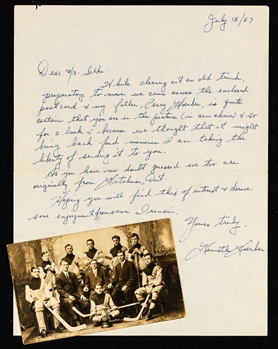 July 15/57
Dear Mr. Selke
While cleaning out an old trunk,
preparatory to move we came across the enclosed
postcard & my father, Percy Hoerber, is quite
certain that you are in the picture (in arm chair) & so
for a lark & because we thought that it might
bring back fond memories I am taking the
liberty of sending it to you.
As you have no doubt guessed we too are
originally from Kitchener, Ont
Hoping you will find this of interest & derive
some enjoyment from same I remain,
Yours truly,
Kenneth Hoerber